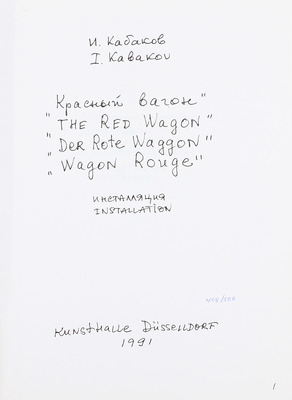 И. Кабаков
I. Kabakov
"Красный вагон"
"The Red Wagon"
"Der Rote Waggon"
"Wagon Rouge"
инсталляция
installation
Kunsthalle Düsseldorf
1991
1